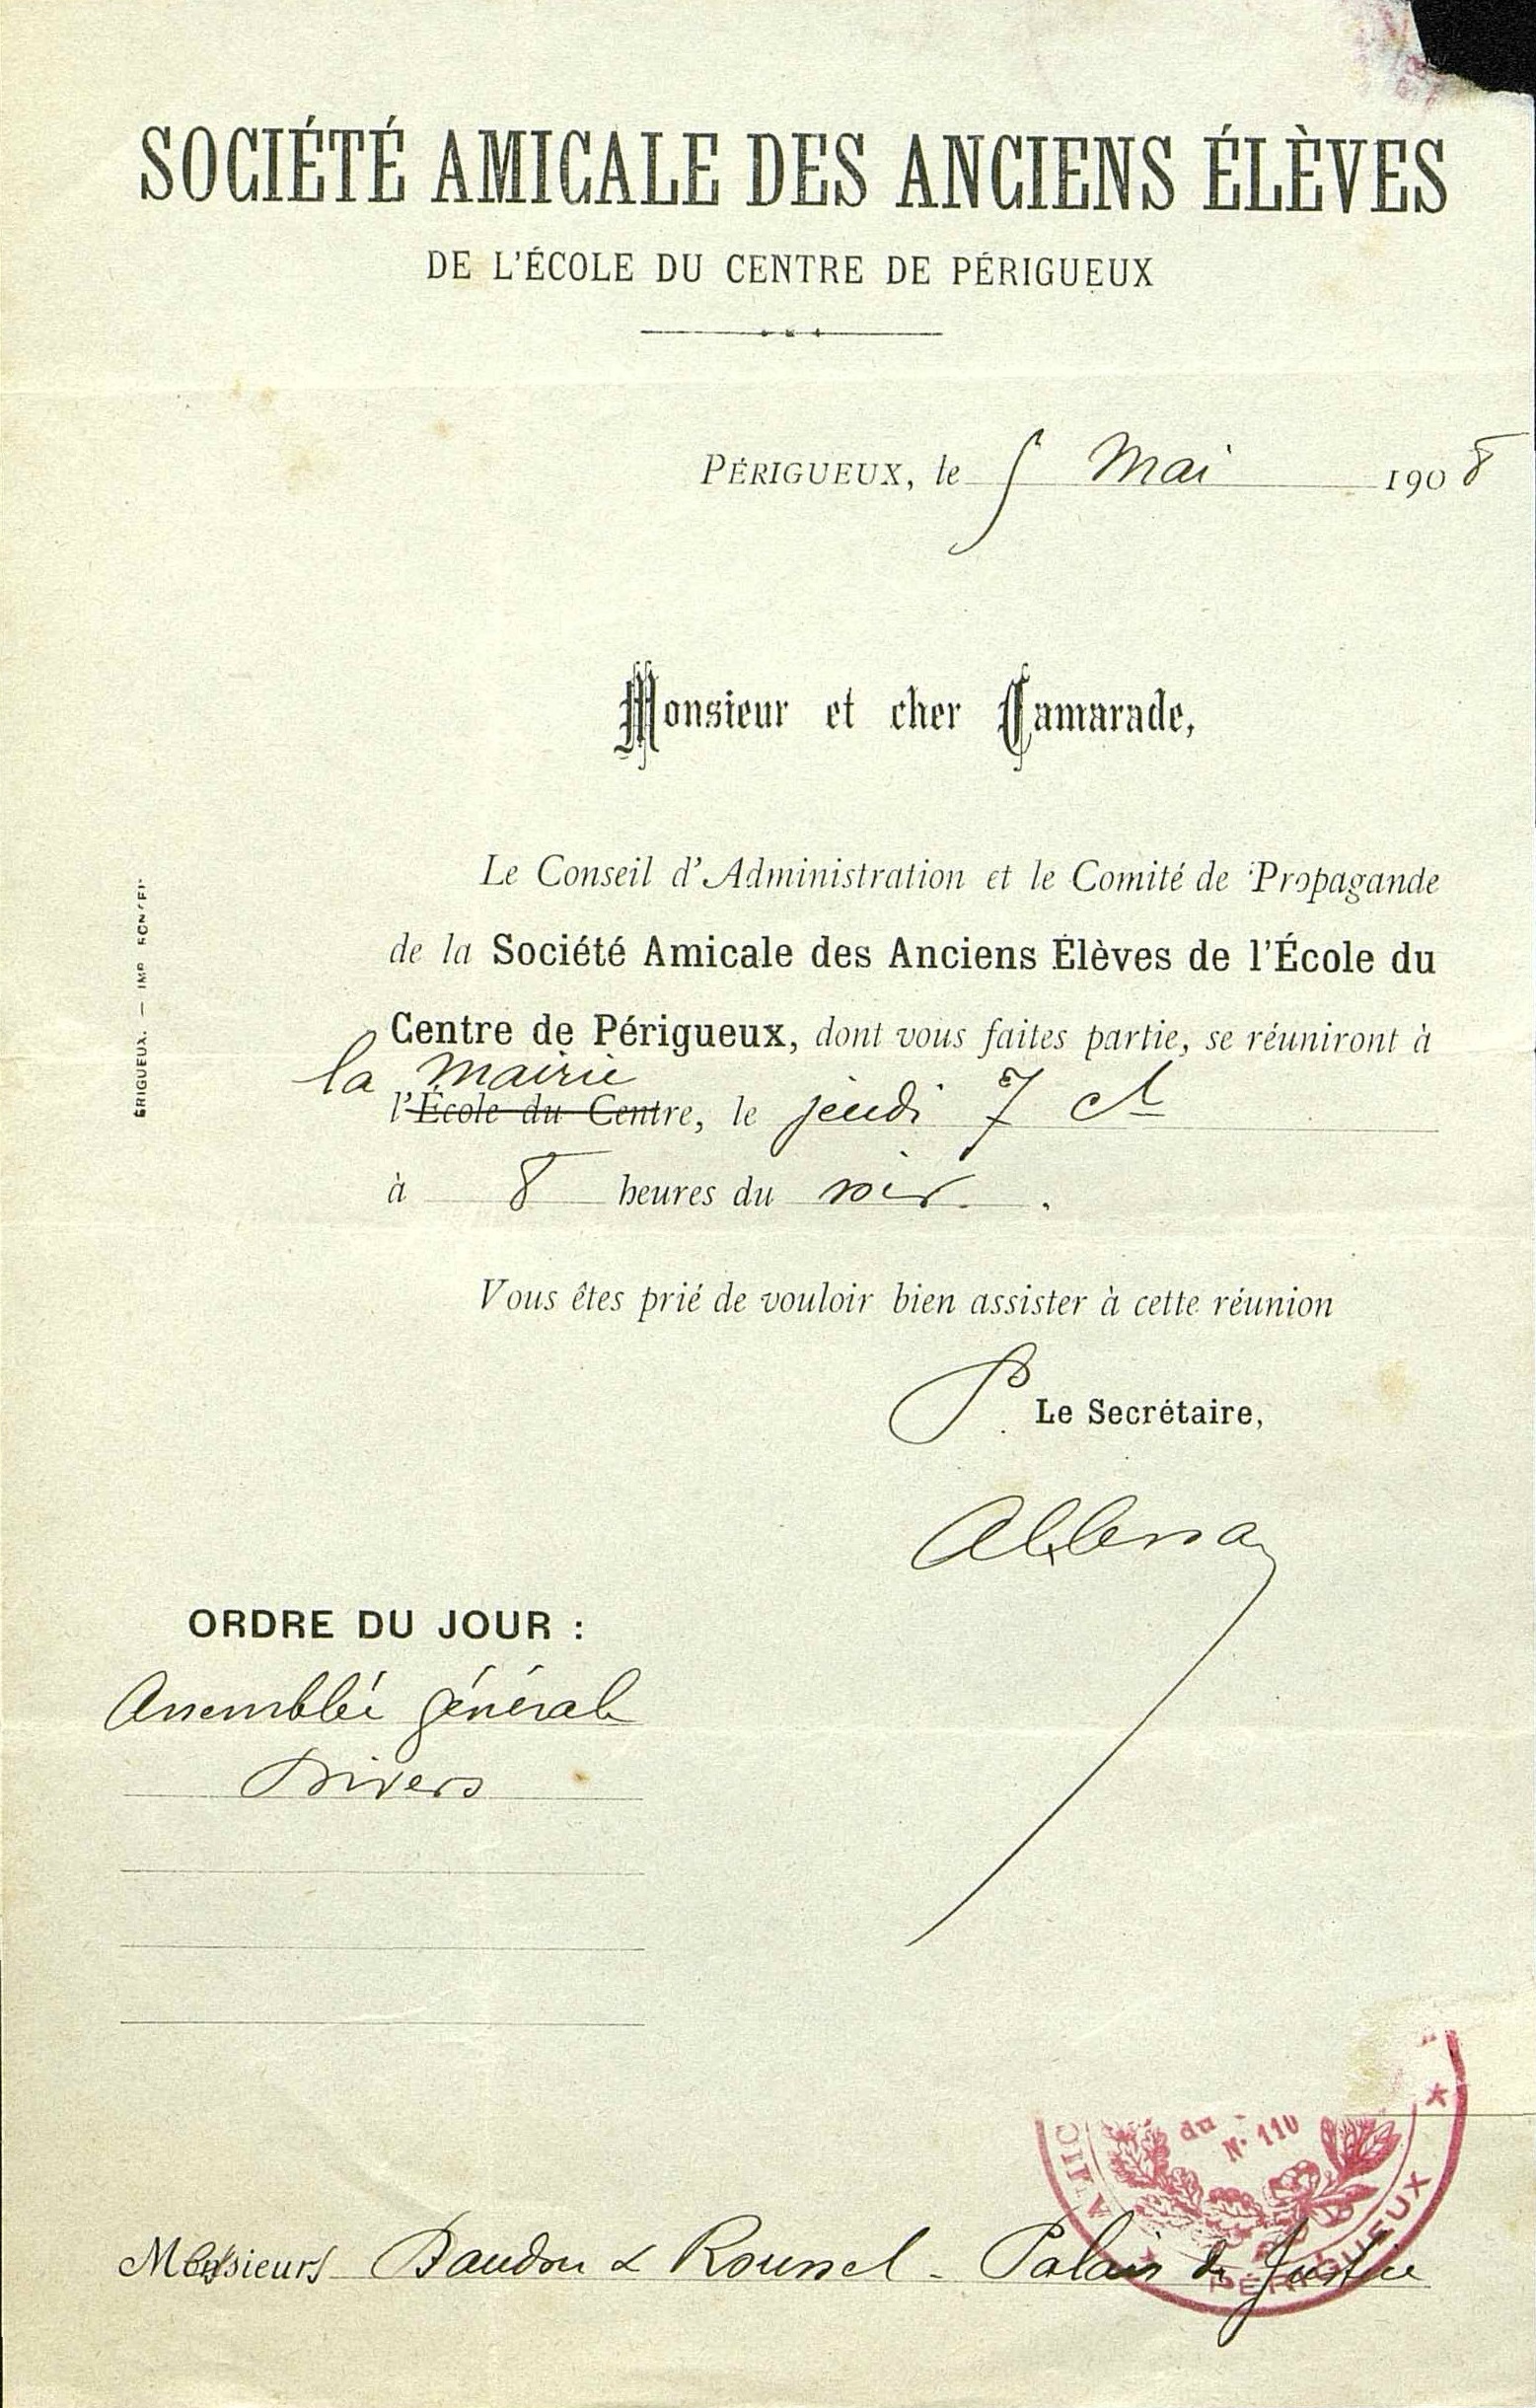 SOCIÉTÉ AMICALE DES ANCIENS ÉLÈVES
DE L'ÉCOLE DU CENTRE DE PÉRIGUEUX
PÉRIGUEUX, le 5 Mai 1908
Monsieur et cher Camarade,
Le Conseil d'Administration et le Comité de Propagande
de la Société Amicale des Anciens Élèves de l'École du
Centre de Périgueux, dont vous faites partie, se réuniront à
la mairie
l'École du Centre, le jeudi 7 ct
à 8 heures du soir.
Vous êtes prié de vouloir bien assister à cette réunion
P. Le Secrétaire,
ORDRE DU JOUR :
Assemblée générale
Divers
Messieurs Baudou & Roussel - Palais de Justice
ÉRIGUEUX. — IMP.
AMIC
du
N° 110
PÉRIGUEUX